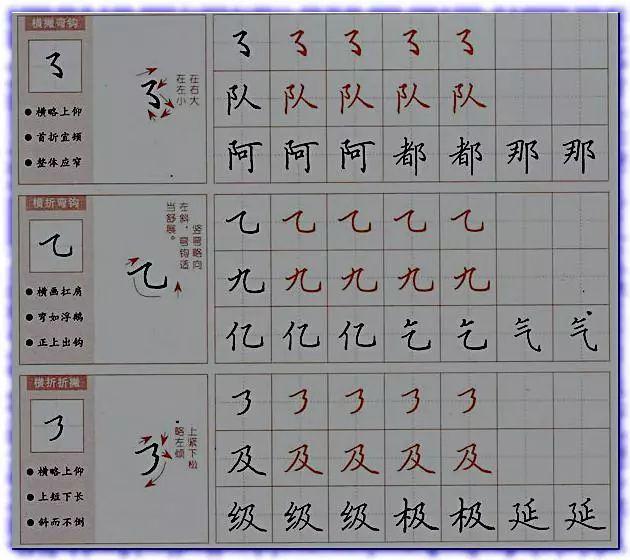 横撇弯钩
㇌
● 横略上仰
● 首折宜倾
● 整体应窄
㇌
在右大
在左小
㇌ ㇌ ㇌ ㇌ ㇌
队 队 队 队 队
阿 阿 阿 都 都 那 那
横折弯钩
㇈
● 横画扛肩
● 弯如浮鹅
● 正上出钩
㇈
竖弯略向
左斜，弯钩适
当舒展。
㇈ ㇈ ㇈ ㇈ ㇈
九 九 九 九 九
亿 亿 亿 乞 乞 气 气
横折折撇
㇋
● 横略上仰
● 上短下长
● 斜而不倒
㇋
上紧下松
略左倾
㇋ ㇋ ㇋ ㇋ ㇋
及 及 及 及 及
级 级 级 极 极 延 延